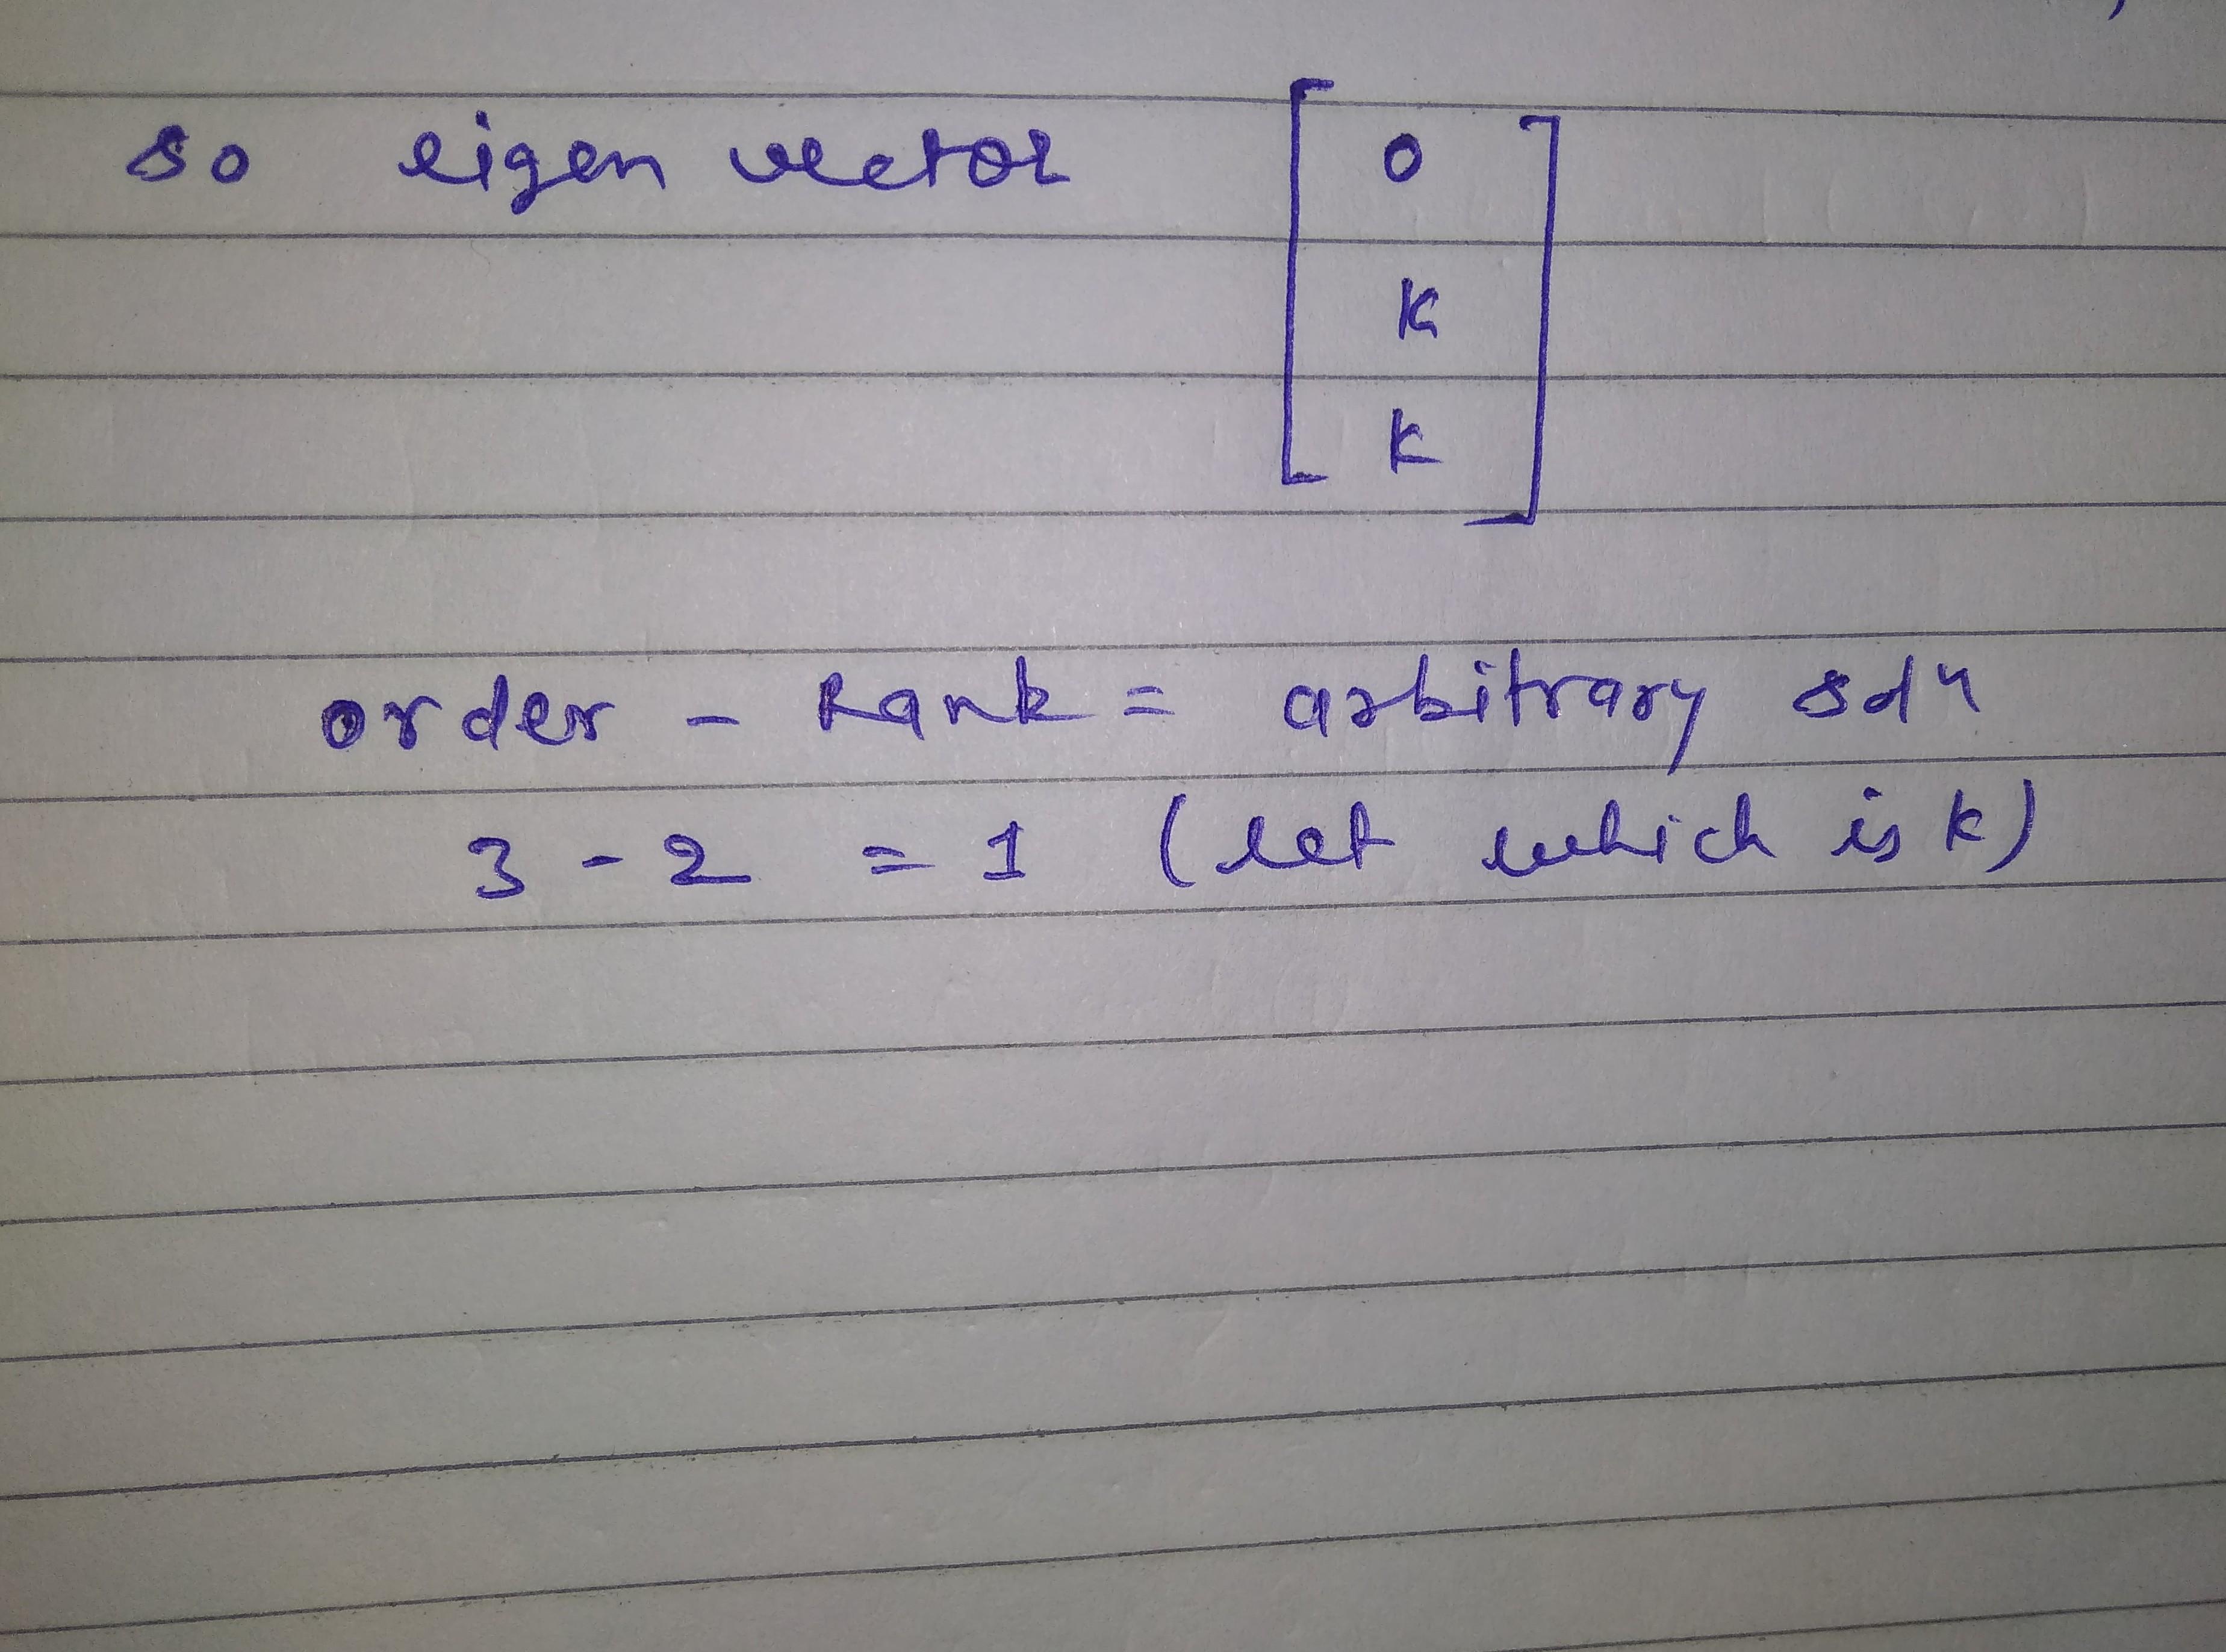 so eigen vector [ 0
k
k ]
order - Rank = arbitrary solⁿ
3 - 2 = 1 (let which is k)